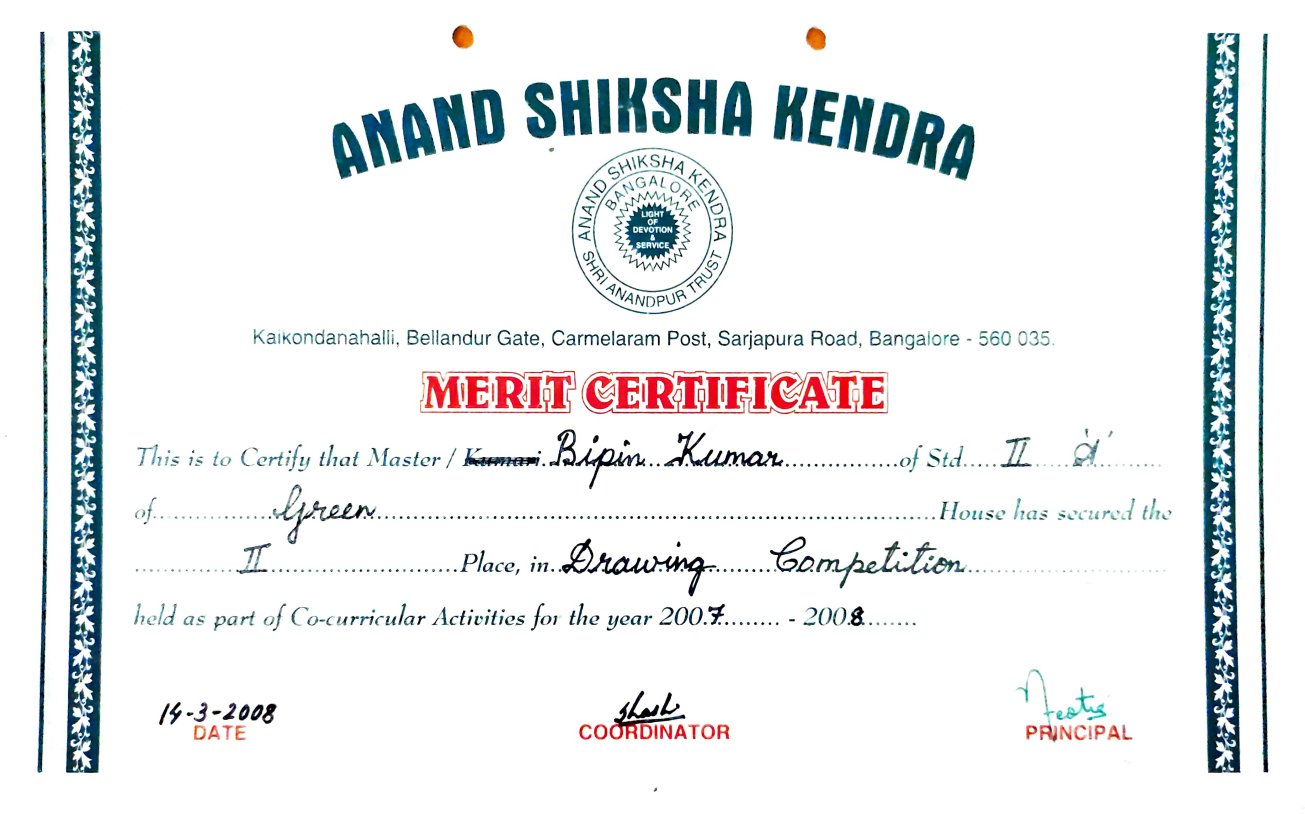 ANAND SHIKSHA KENDRA
ANAND SHIKSHA KENDRA
BANGALORE
LIGHT
OF
DEVOTION
&
SERVICE
SHRI ANANDPUR TRUST
Kaikondanahalli, Bellandur Gate, Carmelaram Post, Sarjapura Road, Bangalore - 560 035.
MERIT CERTIFICATE
This is to Certify that Master / Kumari. Bipin Kumar of Std. II 'A'
of Green House has secured the
II Place, in Drawing Competition
held as part of Co-curricular Activities for the year 2007 - 2008
14-3-2008
DATE
COORDINATOR
PRINCIPAL